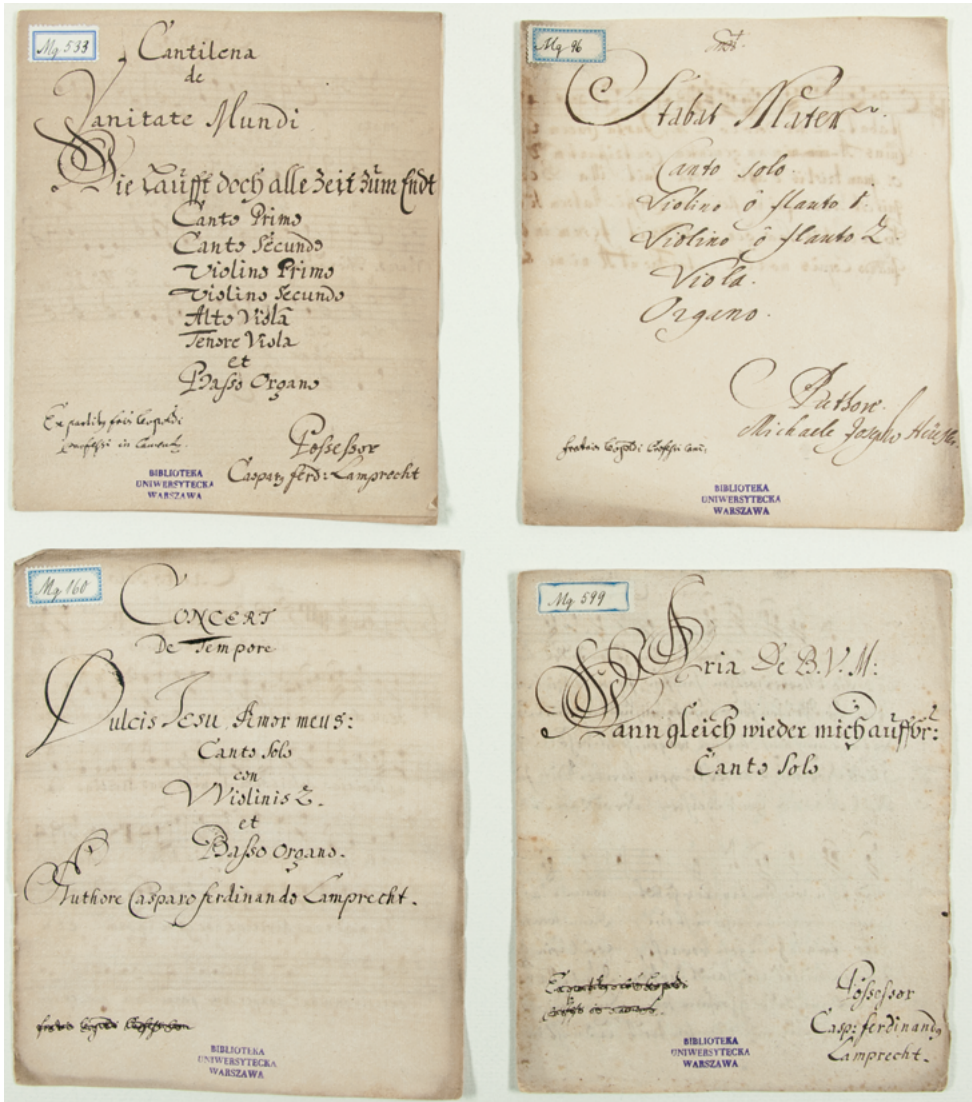 Mq 533
Cantilena
de
Vanitate Mundi
Wie laüfft doch alle Zeit züm Endt
Canto Primo
Canto Secundo
Violino Primo
Violino Secundo
Alto Viola
Tenore Viola
et
Basso Organo
Possessor
Caspar ferd: Lamprecht
BIBLIOTEKA
UNIWERSYTECKA
WARSZAWA
Mq 96
Stabat Mater
Canto solo.
Violino ô flauto 1.
Violino ô flauto 2.
Viola.
Organo.
Authore.
Michaele Josepho
BIBLIOTEKA
UNIWERSYTECKA
WARSZAWA
Mq 160
CONCERT
De Tempore
Dulcis Jesu Amor meus:
Canto Solo
con
Violinis 2.
et
Basso Organo.
Authore Casparo ferdinando Lamprecht.
BIBLIOTEKA
UNIWERSYTECKA
WARSZAWA
Mq 599
Aria De B.V.M:
Wann gleich wieder mich auff
Canto Solo
Possessor
Casp: ferdinand
Lamprecht.
BIBLIOTEKA
UNIWERSYTECKA
WARSZAWA